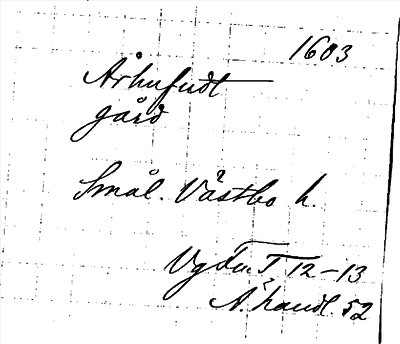 1603
Århufudt
gård
Smål. Våstbo h.
Vgdn. T 12-13
Å. handl. 52